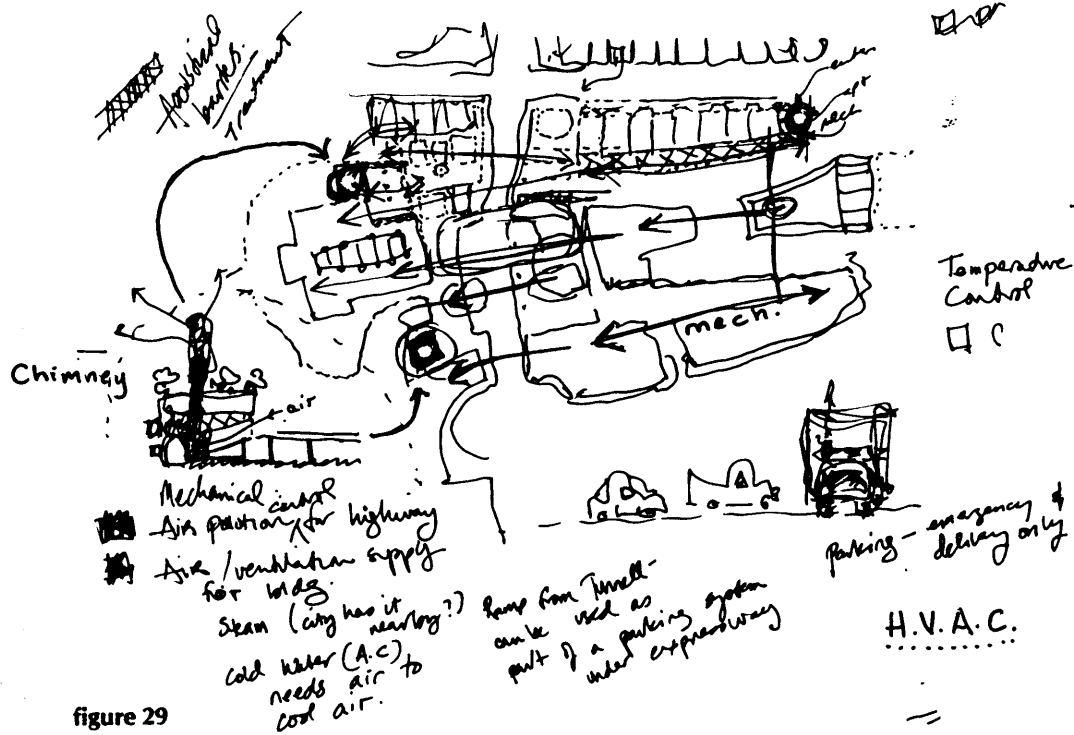 Acoustical
Treatment
mech.
Temperature
Control
Chimney
air
Mechanical
Air polution control for highway
Air/ventilation supply
for bldg.
Steam (city has it
nearby?)
Cold Water (A.C)
needs air to
cool air.
Ramp from Tunnell-
can be used as
part of a parking system
under expressway
Parking - emergency &
delivery only
H.V.A.C.
figure 29